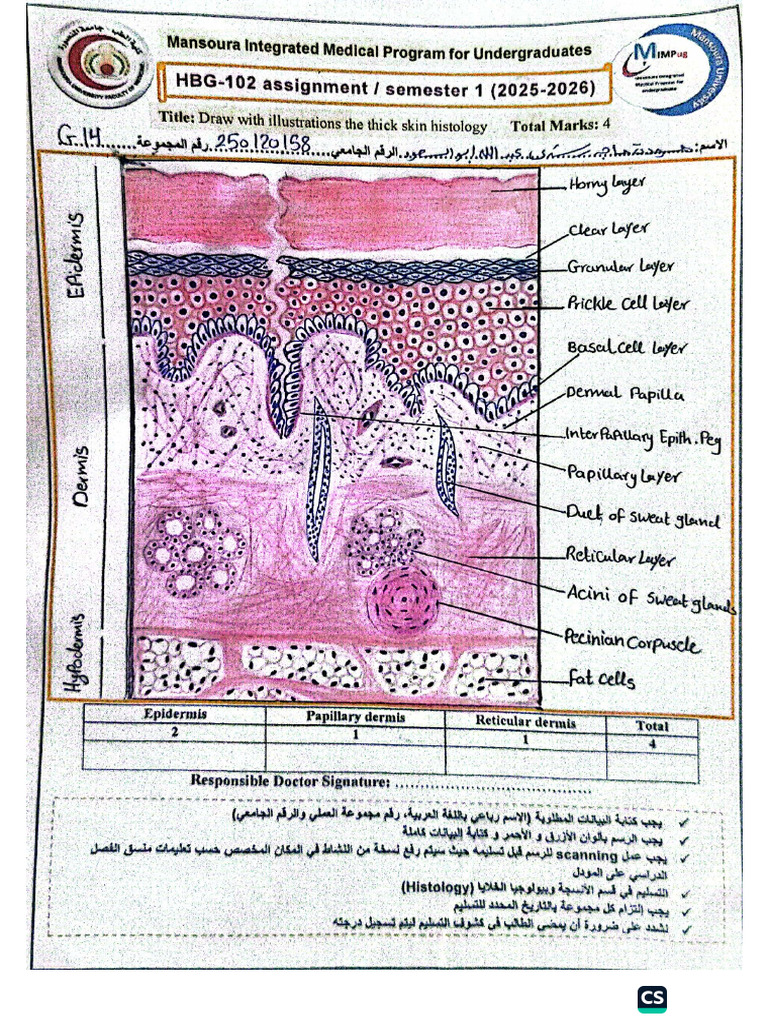 Mansoura Integrated Medical Program for Undergraduates
HBG-102 assignment / semester 1 (2025-2026)
Title: Draw with illustrations the thick skin histology Total Marks: 4
الاسم: رقم الجامعي 250120158 رقم المجموعة G.14
Epidermis
Dermis
Hypodermis
Horny layer
Clear Layer
Granular Layer
Prickle Cell Layer
Basal Cell Layer
Dermal Papilla
Inter Papillary Epith. Peg
Papillary Layer
Duct of sweat gland
Reticular Layer
Acini of Sweat glands
Pecinian Corpuscle
Fat Cells
Epidermis Papillary dermis Reticular dermis Total
2 1 1 4
Responsible Doctor Signature:
✓ يجب كتابة البيانات المطلوبة (الاسم رباعي باللغة العربية، رقم مجموعة العملي والرقم الجامعي)
✓ يجب الرسم بألوان الأزرق و الأحمر و كتابة البيانات كاملة
✓ يجب عمل scanning للرسم قبل تسليمه حيث سيتم رفع نسخة من النشاط في المكان المخصص حسب تعليمات منسق الفصل
الدراسي على المودل
✓ التسليم في قسم الأنسجة وبيولوجيا الخلايا (Histology)
✓ يجب إلتزام كل مجموعة بالتاريخ المحدد للتسليم
✓ نشدد على ضرورة أن يمضى الطالب في كشوف التسليم ليتم تسجيل درجته
MIMPug
Mansoura University
CS